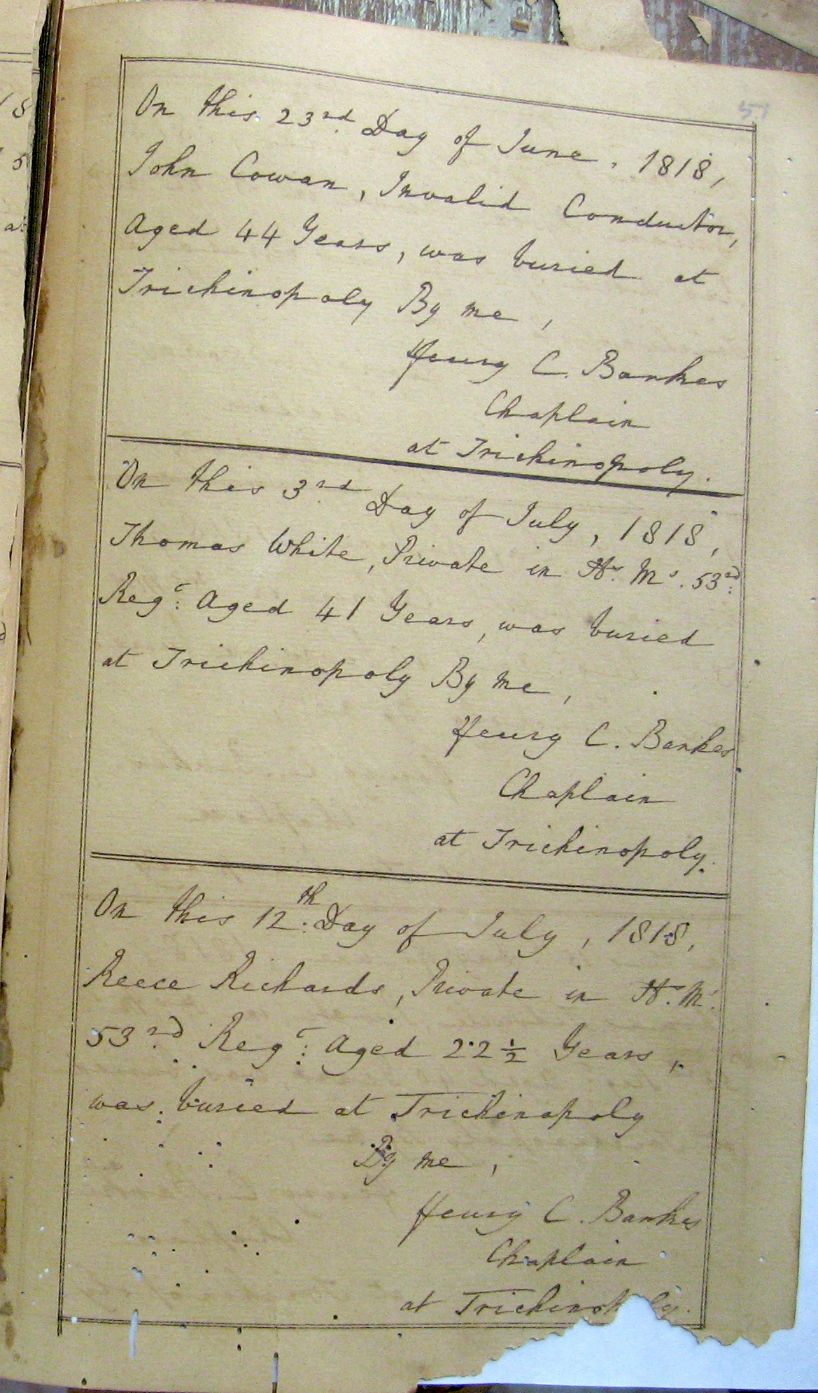 51
On this 23rd Day of June, 1818,
John Cowan, Invalid Conductor,
Aged 44 Years, was buried at
Trichinopoly By me,
Henry C. Bankes
Chaplain
at Trichinopoly.
On this 3rd Day of July, 1818,
Thomas White, Private in H. Ms. 53rd
Regt: Aged 41 Years, was buried
at Trichinopoly By me,
Henry C. Bankes
Chaplain
at Trichinopoly.
On this 12th Day of July, 1818,
Reece Richards, Private in H. Ms.
53rd Regt: Aged 22½ Years,
was buried at Trichinopoly
By me,
Henry C. Bankes
Chaplain
at Trichinopoly.